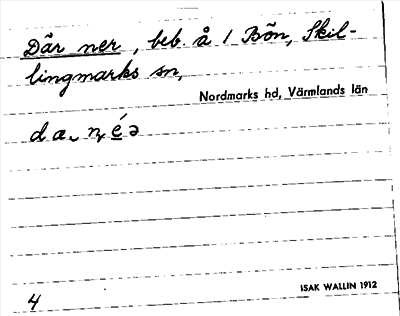 Där ner, beb å 1 Bön, Skil-
lingmarks sn,
Nordmarks hd, Värmlands län
4
ISAK WALLIN 1912